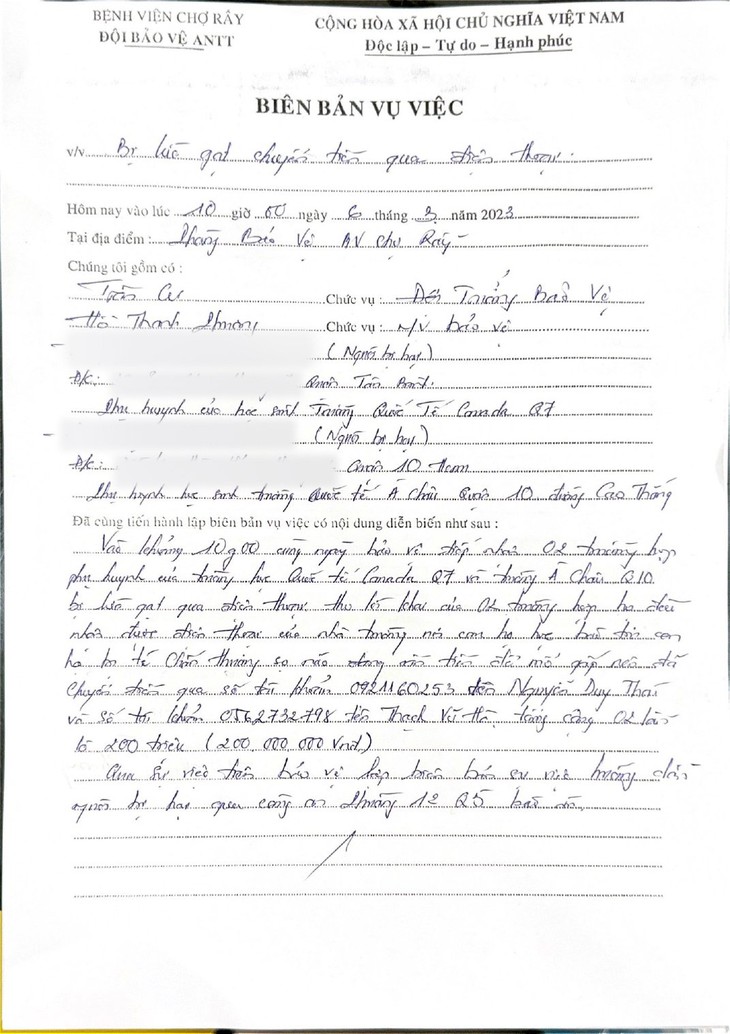 BỆNH VIỆN CHỢ RẪY
ĐỘI BẢO VỆ ANTT
CỘNG HÒA XÃ HỘI CHỦ NGHĨA VIỆT NAM
Độc lập – Tự do – Hạnh phúc
BIÊN BẢN VỤ VIỆC
v/v Bị lừa gạt chuyển tiền qua điện thoại.
Hôm nay vào lúc 10 giờ 00 ngày 6 tháng 3 năm 2023
Tại địa điểm : Phòng Bảo Vệ BV Chợ Rẫy
Chúng tôi gồm có :
Trần Chức vụ : Đội Trưởng Bảo Vệ
Hồ Thanh Chức vụ : N/V bảo vệ
( Người bị hại )
Đ/C: Quận Tân
Phụ huynh của học sinh Trường Quốc Tế Canada Q7
( Người bị hại )
Đ/C: Quận 10 Hcm
Phụ huynh học sinh trường quốc tế Á Châu Quận 10 đường Cao Thắng
Đã cùng tiến hành lập biên bản vụ việc có nội dung diễn biến như sau :
Vào khoảng 10g00 cùng ngày bảo vệ tiếp nhận 02 trường hợp
phụ huynh của trường học Quốc tế Canada Q7 và trường Á Châu Q10
bị lừa gạt qua điện thoại theo lời khai của 02 trường hợp họ đều
nhận được điện thoại của nhà trường nơi con họ học báo tin con
họ bị té Chấn thương sọ não cần tiền để mổ gấp nên đã
chuyển tiền qua số tài khoản 0921160253 tên Nguyễn Duy Thái
và số tài khoản 0562732798 tên Thạch Vũ Hà tổng cộng 02 lần
là 200 triệu ( 200,000,000 Vnđ.)
Qua sự việc trên bảo vệ lập biên bản sự việc hướng dẫn
người bị hại qua công an Phường 12 Q5 báo án.